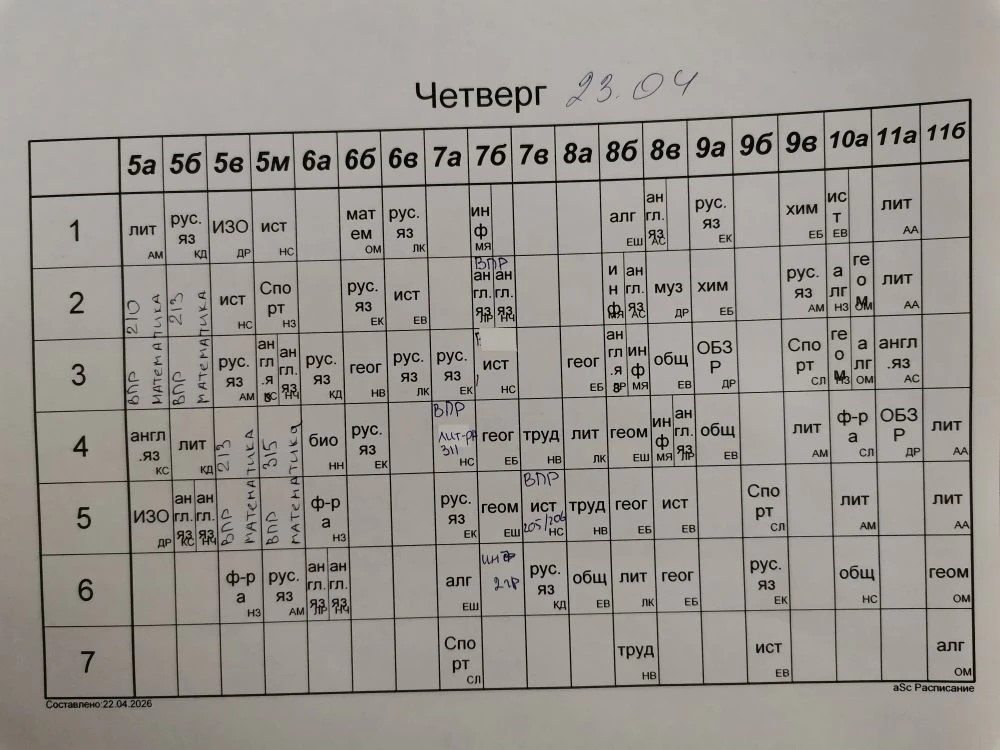 Четверг 23.04
5а 5б 5в 5м 6а 6б 6в 7а 7б 7в 8а 8б 8в 9а 9б 9в 10а 11а 11б
1 лит АМ рус. яз КД ИЗО ДР ист НС мат ем ОМ рус. яз ЛК ин ф МЯ алг ЕШ ан гл. яз АС рус. яз ЕК хим ЕБ ис т ЕВ лит АА
2 ВПР 210 математика ВПР 213 математика ист НС Спо рт НЗ рус. яз ЕК ист ЕВ ВПР ан гл. яз ЛР ан гл. яз НЧ и н ф МЯ ан гл. яз АС муз ДР хим ЕБ рус. яз АМ а лг НЗ ге о м ОМ лит АА
3 рус. яз АМ ан гл .я з КС ан гл. яз НЧ рус. яз КД геог НВ рус. яз ЛК рус. яз ЕК ист НС геог ЕБ ан гл .я з ЛР ин ф МЯ общ ЕВ ОБЗ Р ДР Спо рт СЛ ге о м НЗ а лг ОМ англ .яз АС
4 англ .яз КС лит КД ВПР 213 математика ВПР 315 математика био НН рус. яз ЕК ВПР лит-ра 311 НС геог ЕБ труд НВ лит ЛК геом ЕШ ин ф МЯ ан гл. яз ЛР общ ЕВ лит АМ ф-р а СЛ ОБЗ Р ДР лит АА
5 ИЗО ДР ан гл. яз КС ан гл. яз НЧ ф-р а НЗ рус. яз ЕК геом ЕШ ВПР ист 205/206 НС труд НВ геог ЕБ ист ЕВ Спо рт СЛ лит АМ лит АА
6 ф-р а НЗ рус. яз АМ ан гл. яз ЛР ан гл. яз НЧ алг ЕШ инф 2 гр рус. яз КД общ ЕВ лит ЛК геог ЕБ рус. яз ЕК общ НС геом ОМ
7 Спо рт СЛ труд НВ ист ЕВ алг ОМ
Составлено:22.04.2026 aSc Расписание